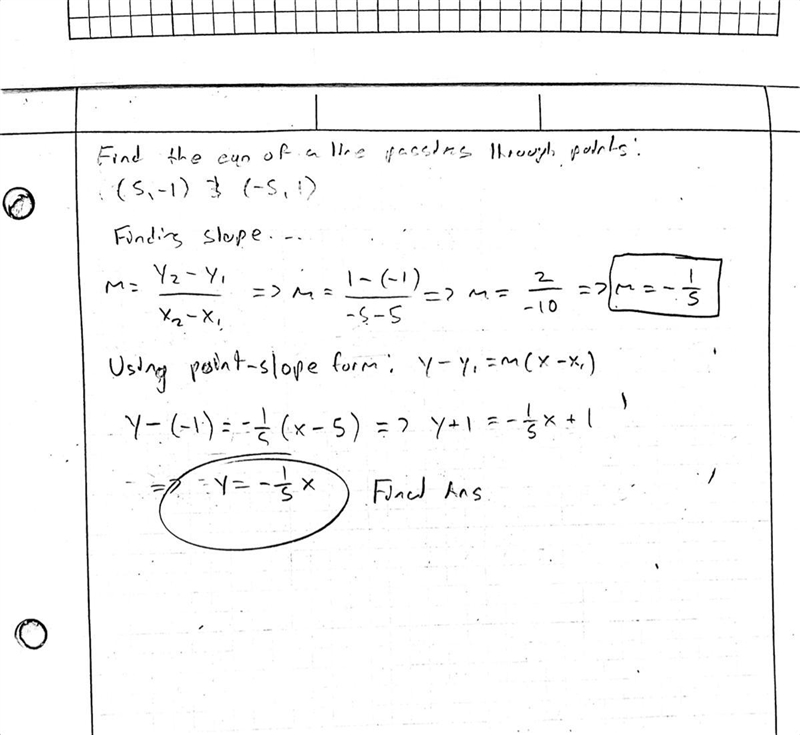 Find the eqn of a line passing through points:
(5,-1) & (-5,1)
Finding slope...
m = (y₂-y₁)/(x₂-x₁) => m = (1-(-1))/(-5-5) => m = 2/-10 => m = -1/5
Using point-slope form: y-y₁=m(x-x₁)
y-(-1) = -1/5(x-5) => y+1 = -1/5x+1
=> y = -1/5x Final Ans